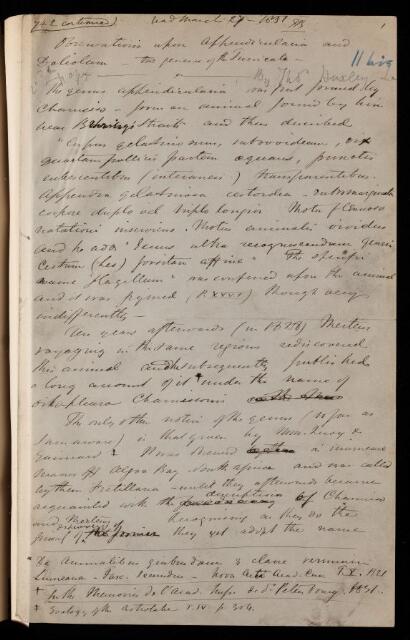 742 continued) read March 27 - 1851 1
Observations upon Appendicularia and
Doliolum - two genera of the Tunicata - 11 his
By Thos Huxley
The genus Appendicularia was first formed by
Chamisso - from an animal found by him
near Behrings Straits and thus described
"Corpus gelatinosum, subovoideum, vix
quartam pollicis partem aequans, punctis
rubescentibus (interaneis?) transparentibus.
Appendix gelatinosa cestoidea
corpore duplo vel triplo longior Motu
natationi inserviens. Motus animalis vividus
and he adds "Genus ulterius recognoscendum generi
Cestum (Les) forsitan affine" The specific
name "flagellum" was conferred upon the animal
and it was figured (P. XXXV) though very
indifferently -
Ten years afterwards (in 1828) Mertens
voyaging in the same regions rediscovered
this animal and subsequently published
a long account of it † under the name of
Oikopleura Chamissonis
The only other notice of the genus (so far as
I am aware) is that given by Mm. Quoy &
Gaimard ‡ It was found in immense
masses off Algoa Bay South Africa and was called
by them Fretillaria - until they afterwards became
acquainted with the descriptions of Chamisso
and Mertens Recognising as they do the
priority of the former they yet adopt the name
* De Animalibus quibusdam e classe vermium
Linneana - Fasc. Secundus - Nova Acta Acad. Cur T. X. 1821
† In the Memoires de l'Acad. Imp. de St Petersbourg. 1831.
‡ Zoology of the Astrolabe V. IV p. 304.